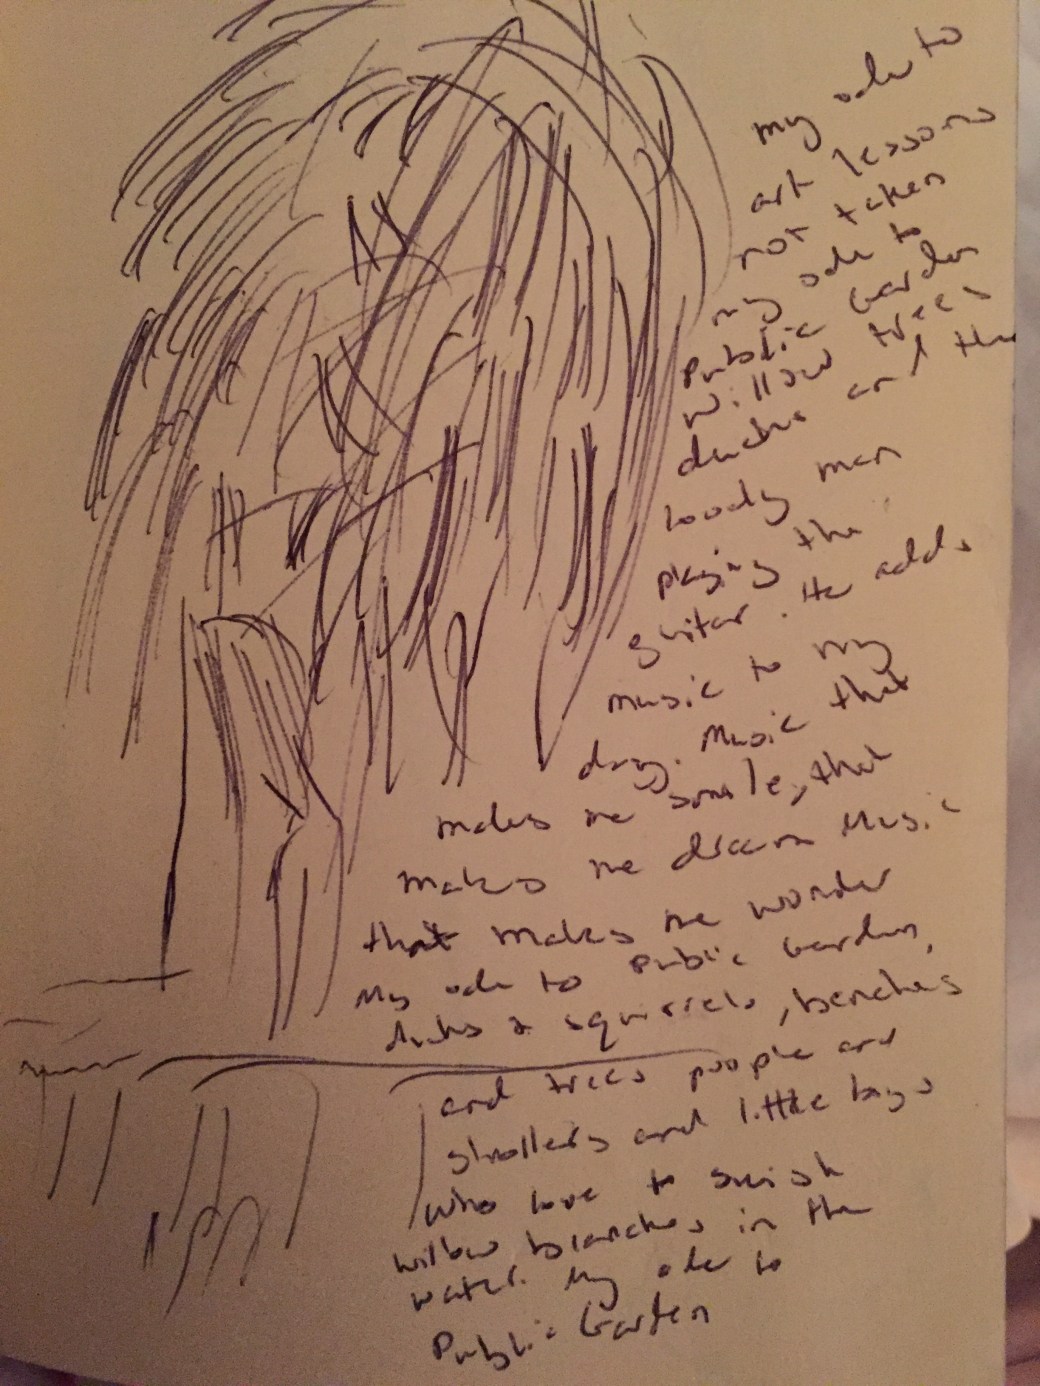 my ode to
art lessons
not taken
my ode to
public Garden
willow trees
ducks and the
man
playing the
guitar. He adds
music to my
day. Music that
makes me smile, that
makes me dream Music
that makes me wonder
My ode to public Garden,
ducks & squirrels, benches
and trees people and
strollers and little boys
who love to swish
willow branches in the
water. My ode to
Public Garden